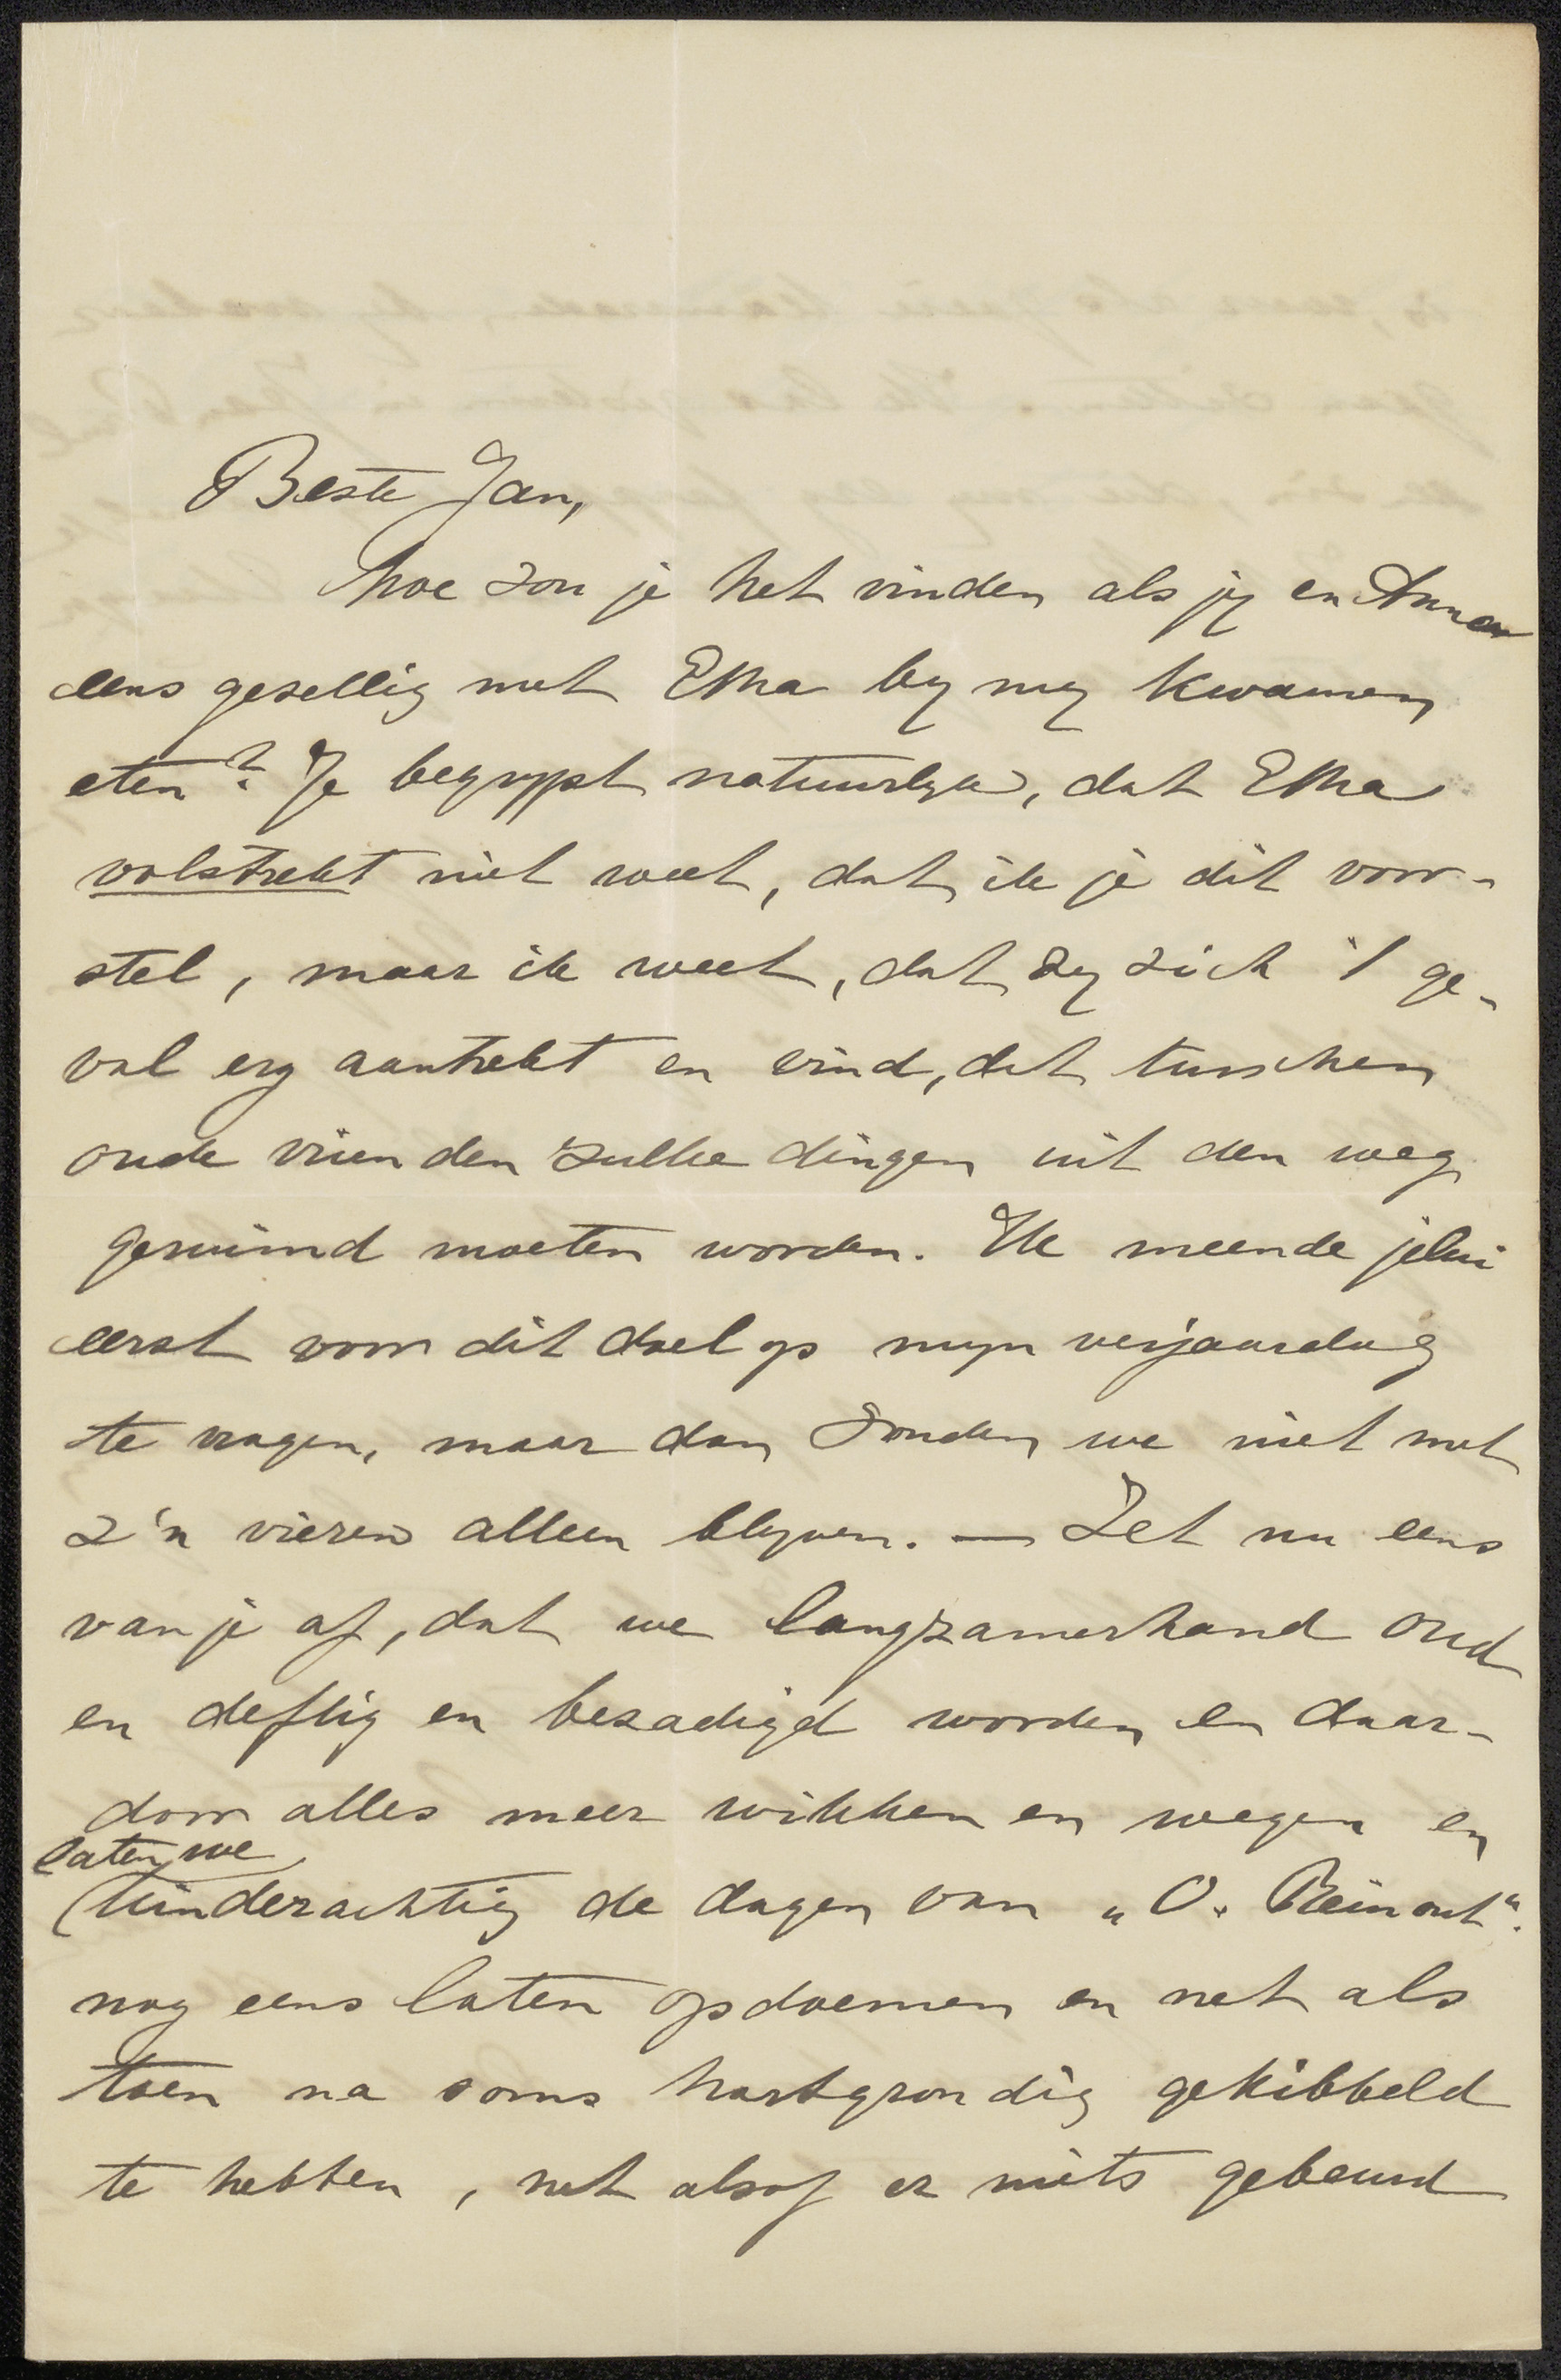 Beste Jan,
hoe zou je het vinden als jy en Anna
eens gesellig met Etha by my kwamen
eten? Je begrypt natuurlyk, dat Etha
volstrekt niet weet, dat ik je dit voor-
stel, maar ik weet, dat zy zich 't ge-
val erg aantrekt en vind, dat tusschen
oude vrienden zulke dingen uit den weg
geruimd moeten worden. Ik meende jelui
eerst voor dit doel op myn verjaardag
te vragen, maar dan zouden we niet met
z'n vieren alleen blyven. — Zet nu eens
van je af, dat we langzamerhand oud
en deftig en bezadigd worden en daar-
door alles meer wikken en wegen en
laten we
(kinderachtig de dagen van „O. Reinout".
nog eens laten opdoemen en net als
toen na soms hartgrondig gekibbeld
te hebben, net alsof er niets gebeurd